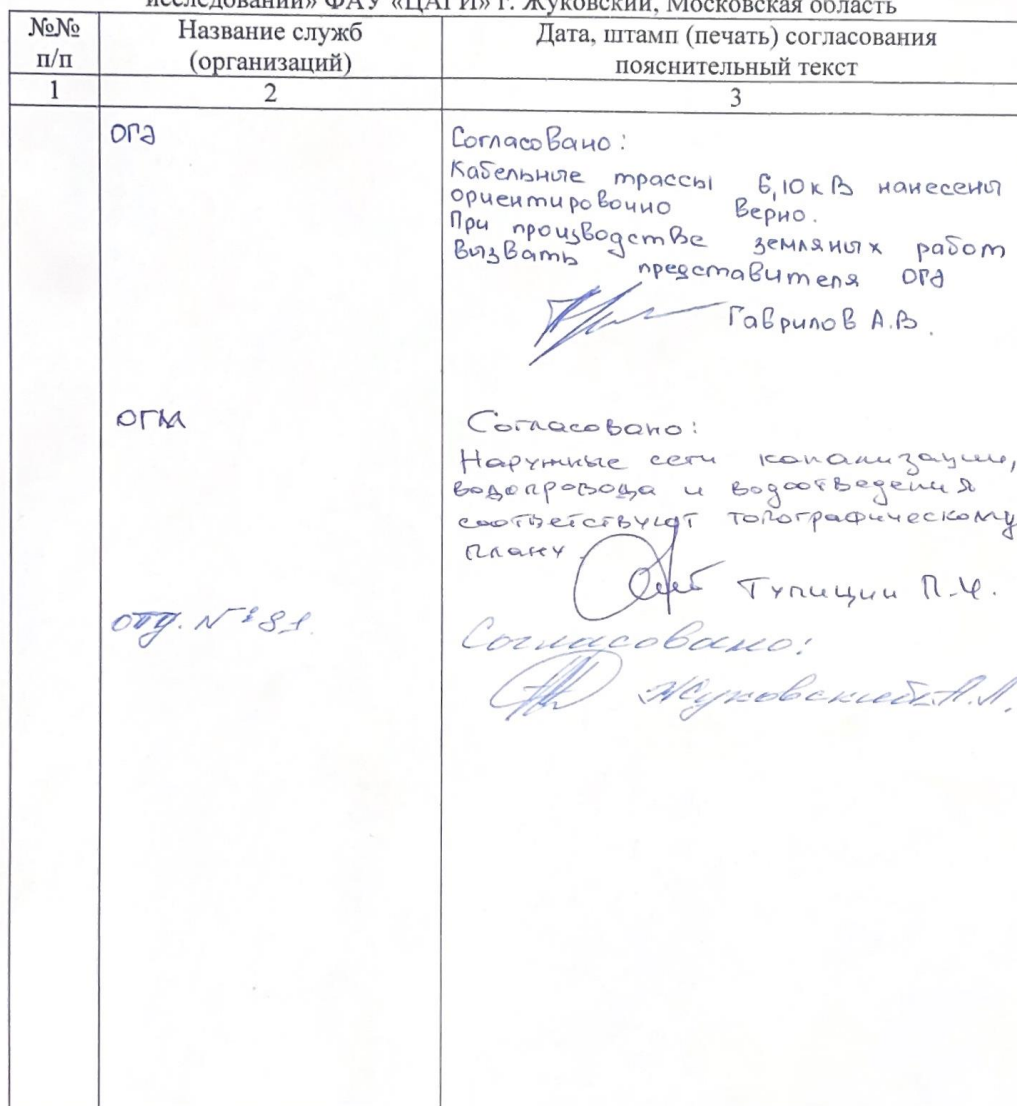 исследований» ФАУ «ЦАГИ» г. Жуковский, Московская область
№№ п/п
Название служб (организаций)
Дата, штамп (печать) согласования пояснительный текст
1
2
3
ОГЭ
Согласовано:
Кабельные трассы 6,10 кВ нанесены
ориентировочно верно.
При производстве земляных работ
вызвать представителя ОГЭ
Гаврилов А.В.
ОГМ
Согласовано:
Наружные сети канализации,
водопровода и водоотведения
соответствуют топографическому
плану.
Тупицин П.Ч.
отд. №81.
Согласовано:
Жуковский А.Л.